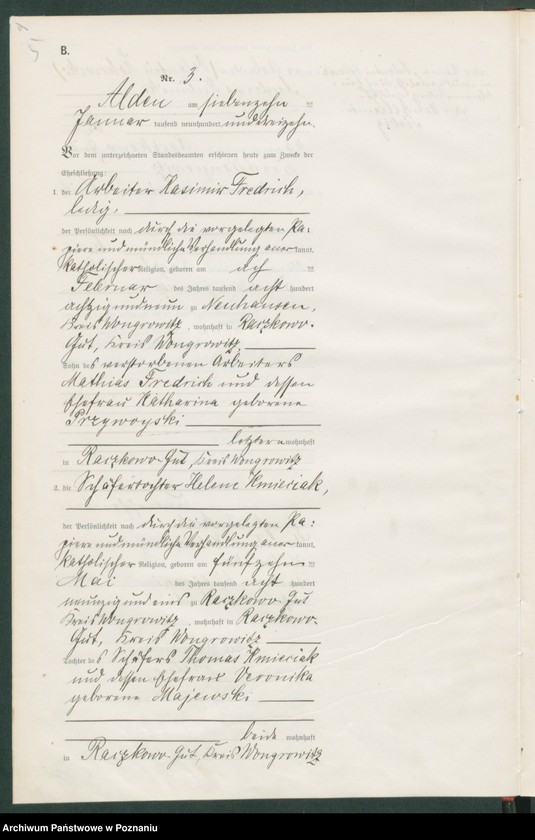 5
B.
Nr. 3.
Alden am siebenzehn ten
Januar tausend neunhundert und dreizehn.
Vor dem unterzeichneten Standesbeamten erschienen heute zum Zwecke der
Eheschließung:
1. der Arbeiter Kasimir Fredrich,
ledig,
der Persönlichkeit nach durch die vorgelegten Pa-
piere und mündliche Verhandlung aner kannt,
katholischer Religion, geboren am ten
Februar des Jahres tausend acht hundert
achtzig und neun zu Neuhausen,
Kreis Wongrowitz, wohnhaft in Raczkowo-
Gut, Kreis Wongrowitz
Sohn des verstorbenen Arbeiters
Mathias Fredrich und dessen
Ehefrau Katharina geborene
Przywoyski
letztere wohnhaft
in Raczkowo-Gut, Kreis Wongrowitz
2. die Schäfertochter Helene Kmieciak,
der Persönlichkeit nach durch die vorgelegten Pa-
piere und mündliche Verhandlung aner kannt,
katholischer Religion, geboren am fünfzehn ten
Mai des Jahres tausend acht hundert
neunzig und eins zu Raczkowo-Gut
Kreis Wongrowitz, wohnhaft in Raczkowo-
Gut, Kreis Wongrowitz
Tochter des Schäfers Thomas Kmieciak
und dessen Ehefrau Veronika
geborene Majewski
beide wohnhaft
in Raczkowo-Gut, Kreis Wongrowitz
Archiwum Państwowe w Poznaniu